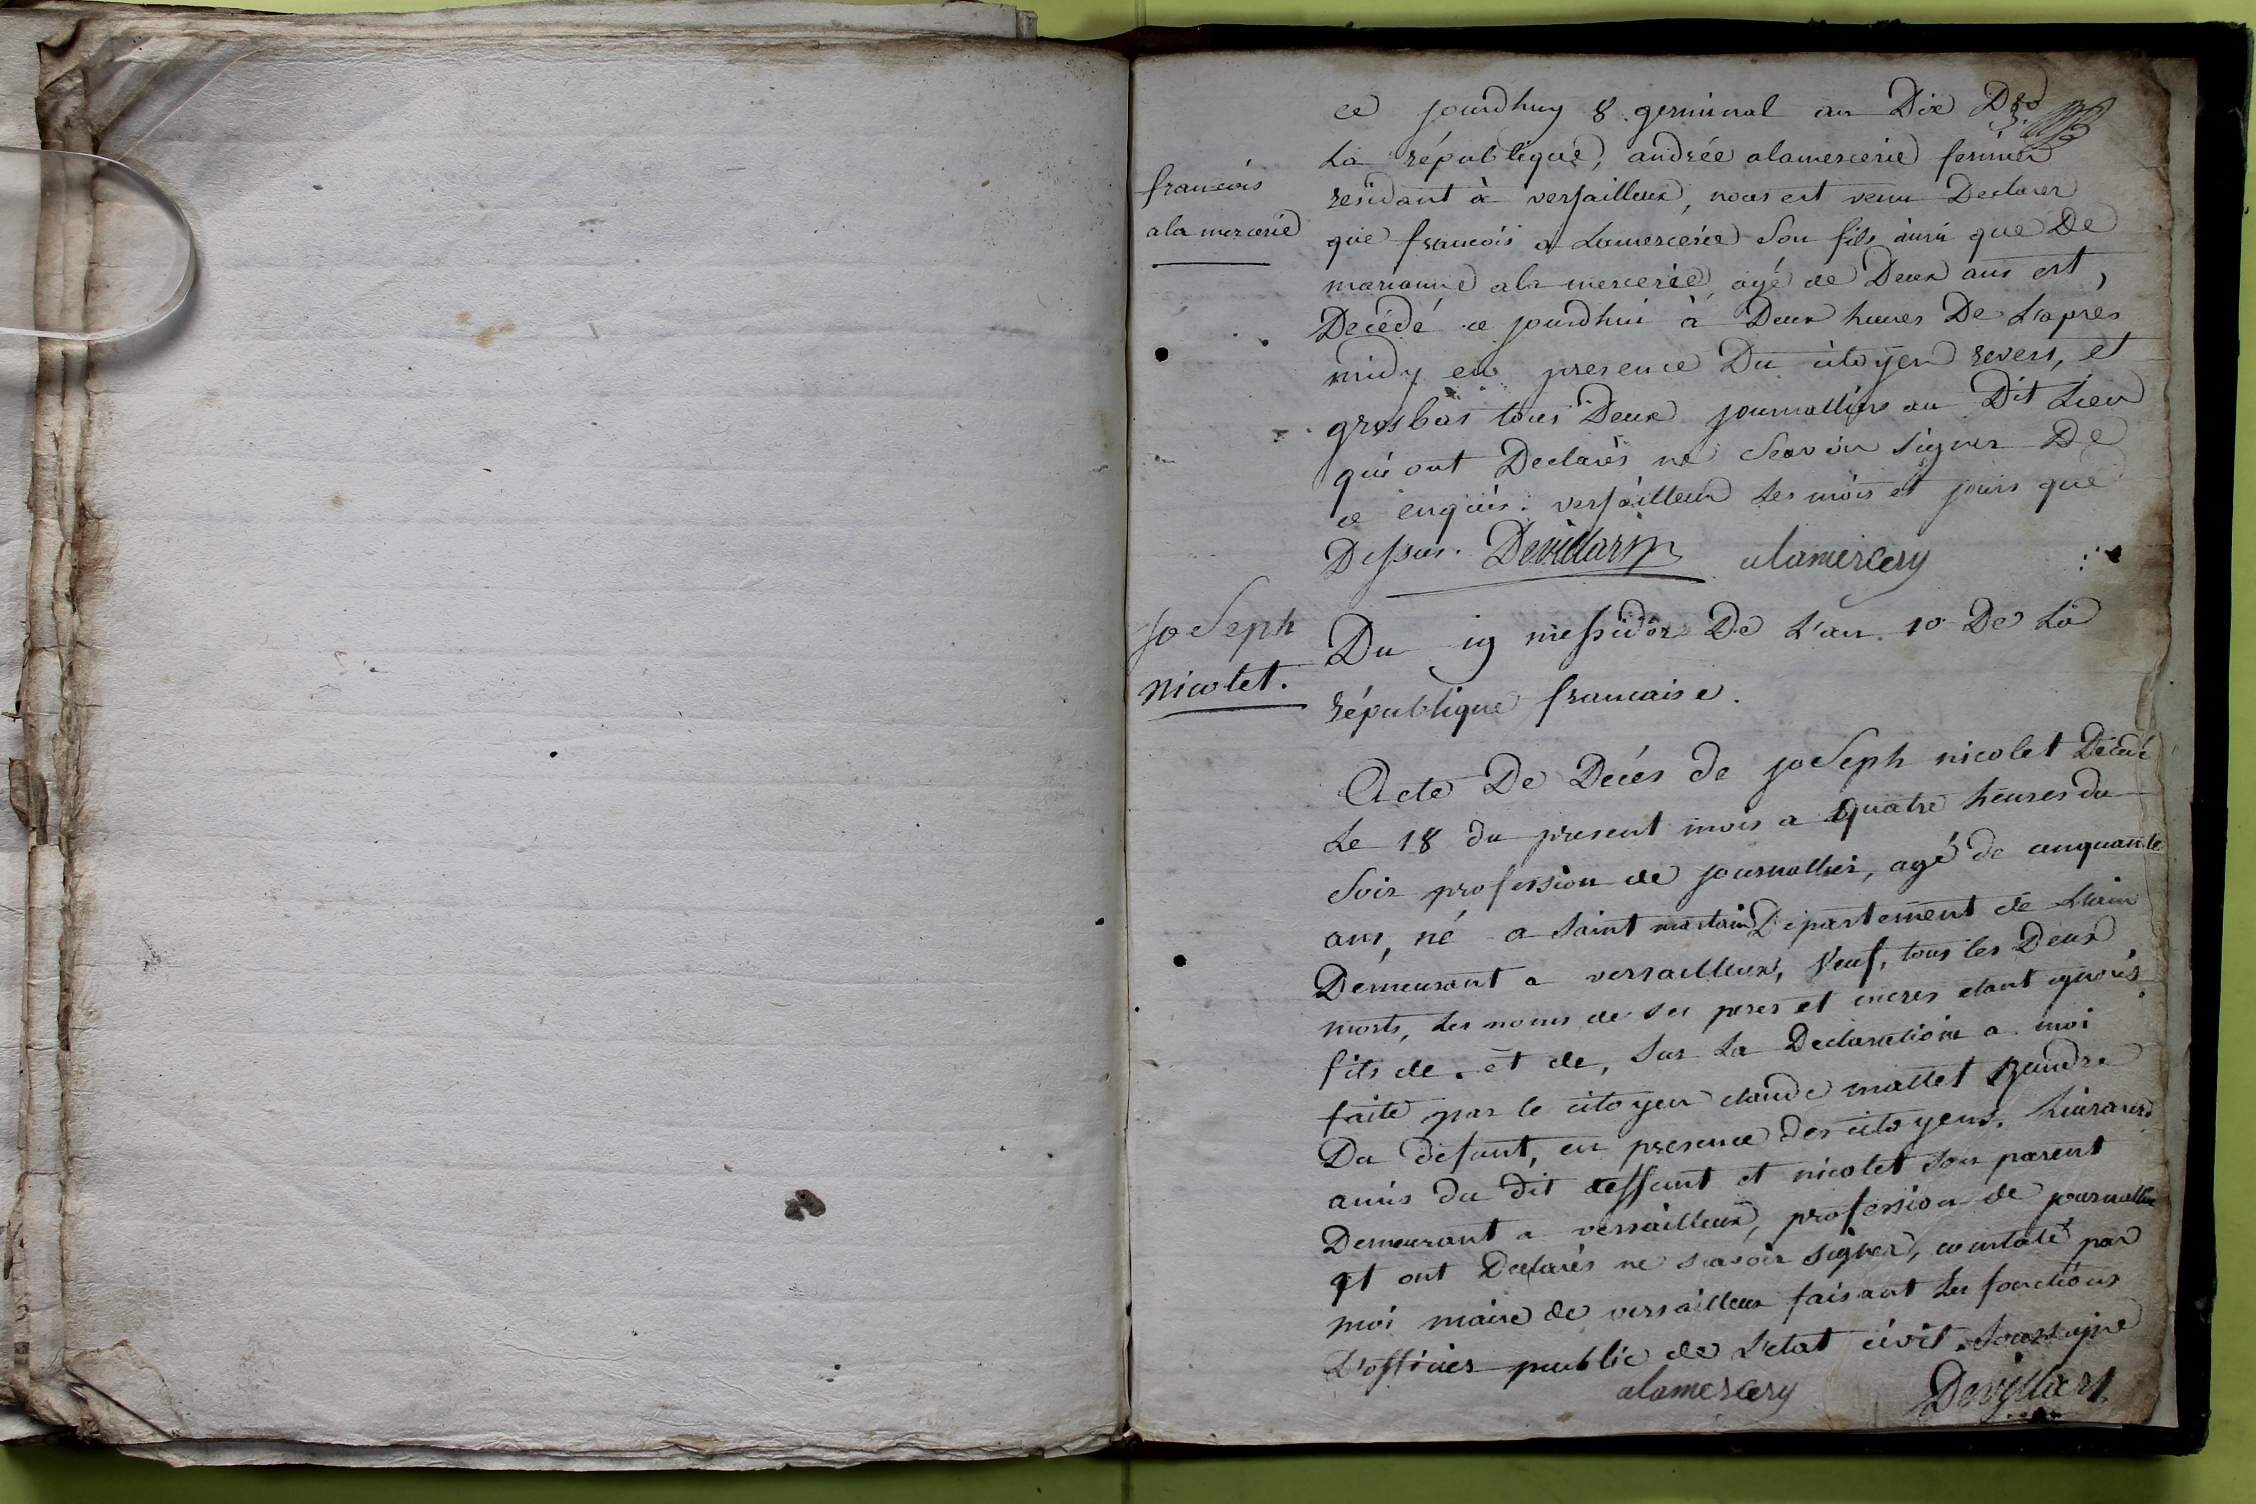 ce jourdhuy 8 germinal an Dix De
La république, andrée alamercerie fermier
françois
alamercerie
résidant à versailleux, nous est venu Declarer
que françois a Lamercerie Son fils ainsi que De
marianne ala mercerie, agé de Deux ans est,
Decédé ce jourdhui à Deux heures De L'après
midy en presence Du citoyen revers, et
grosbas tous Deux journalliers au Dit Lieu
qui ont Declarés ne Scavoir signer De
ce enquis. versailleux Les mois et jours que
Dessus. Devillars alamercery
joSeph
nicolet.
Du 19 messidor De L'an 10 De La
république francaise.
Acte De Decés de joSeph nicolet Décédé
Le 18 du present mois a quatre heures du
Soir profession de journallier, agé de cinquante
ans, né a Saint martain Département de L'ain
Démeurant a versailleux, Veuf, tous les Deux
morts, Les noms de ses peres et meres etant ignorés
fils de . et de, Sur La Declaration a moi
faite par le citoyen claude mallet gendre
Du défunt, en presence des citoyens,
amis du dit deffunt et nicolet son parent
Demeurant a versailleux, profession de journallier
et ont Declarés ne scavoir signer, constaté par
moi maire de versailleux faisant Les fonctions
D'officier public de L'etat civil. Soussigné
alamercery Devillars